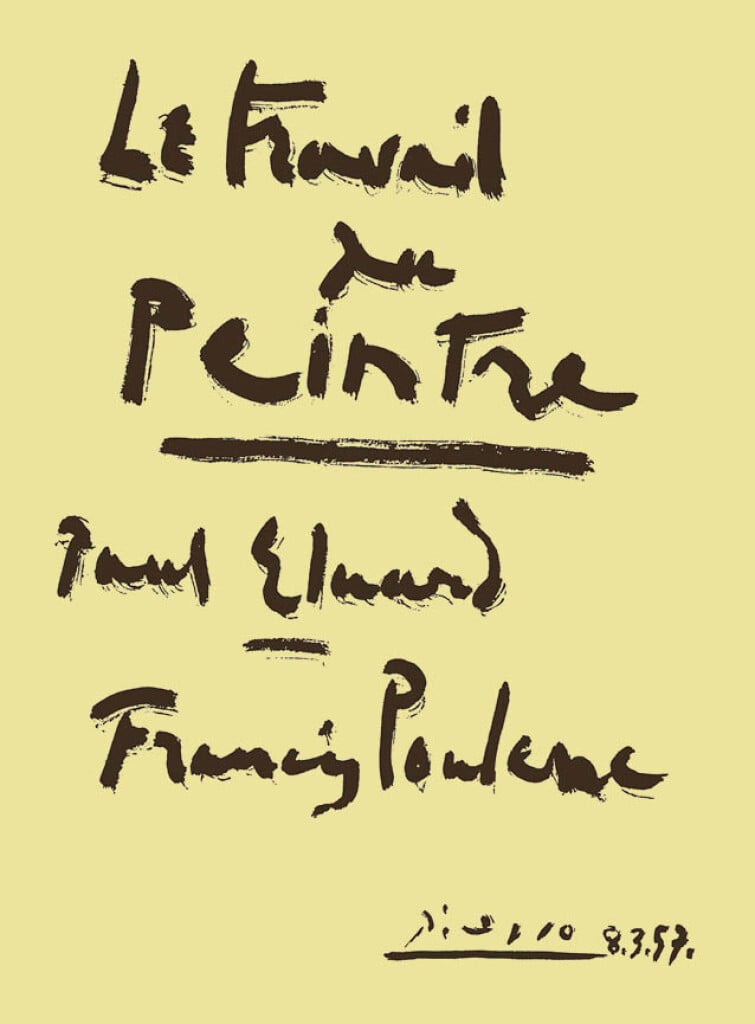 Le Travail
du
Peintre
Paul Eluard
Francis Poulenc
Picasso 8.3.57.